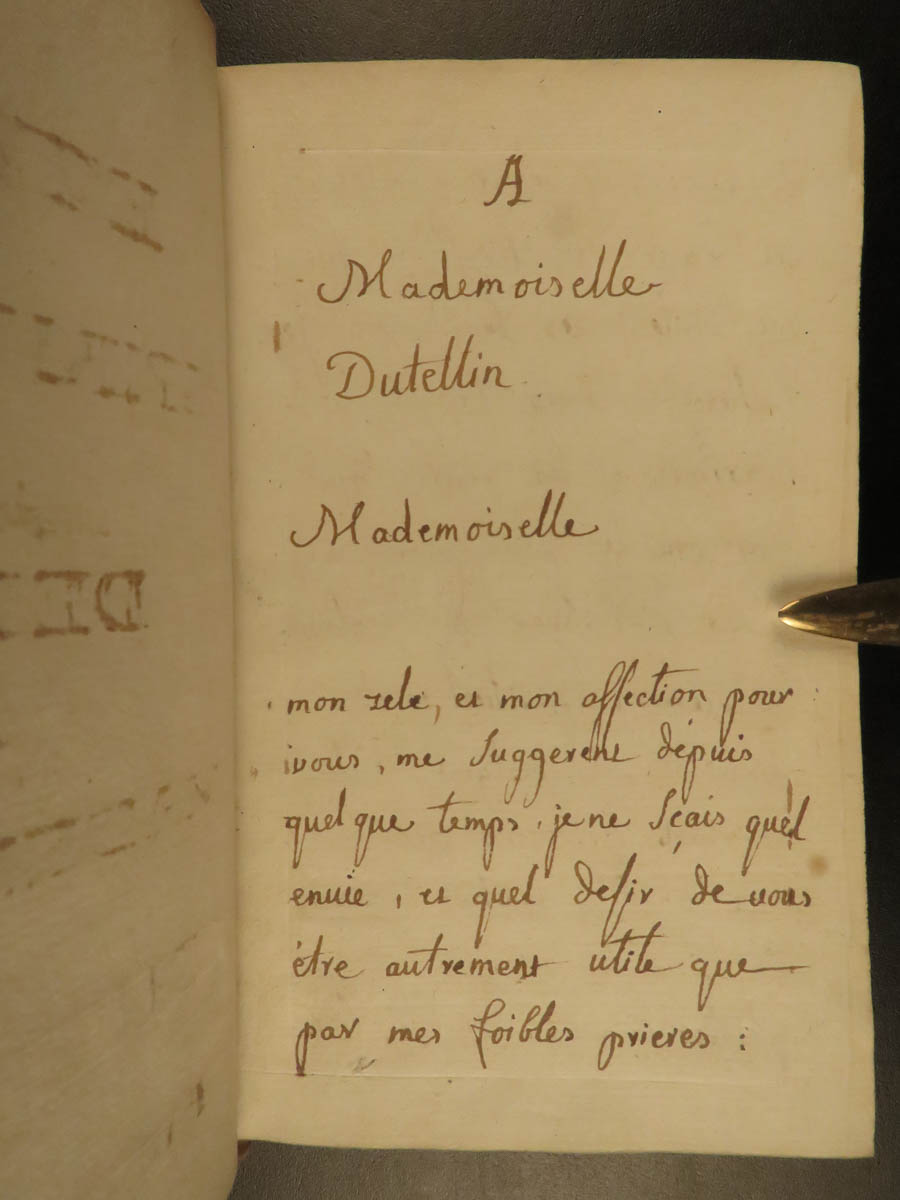 A
Mademoiselle
Dutellin
Mademoiselle
mon zele, et mon affection pour
vous, me suggerent dépuis
quelque temps, je ne sçais quel
envie, et quel desir de vous
étre autrement utile que
par mes foibles prieres :